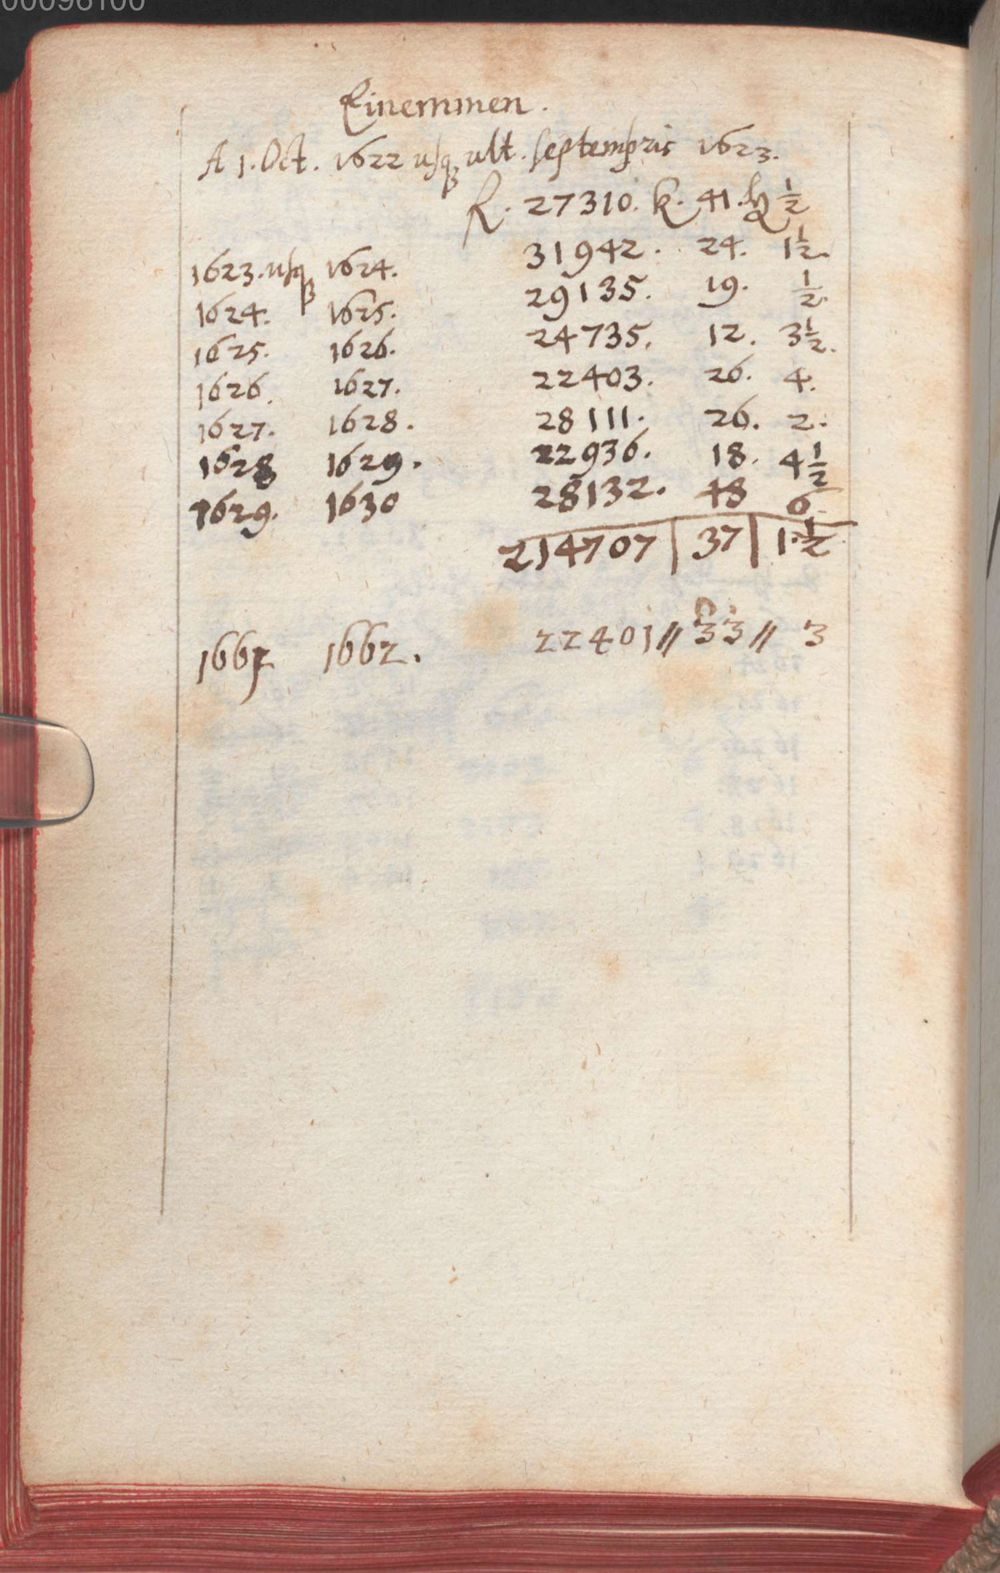 00096100
Einemmen.
A 1. Oct. 1622 usq3 ult. septembris 1623.
R. 27310. k. 41. h 1/2
1623. usq3 1624. 31942. 24. 1 1/2.
1624. 1625. 29135. 19. 1/2.
1625. 1626. 24735. 12. 3 1/2.
1626. 1627. 22403. 26. 4.
1627. 1628. 28111. 26. 2.
1628 1629. 22936. 18. 4 1/2
1629. 1630 28132. 48 6
214707 | 37 | 1. 1/2
1661 1662. 22401 // 33 // 3